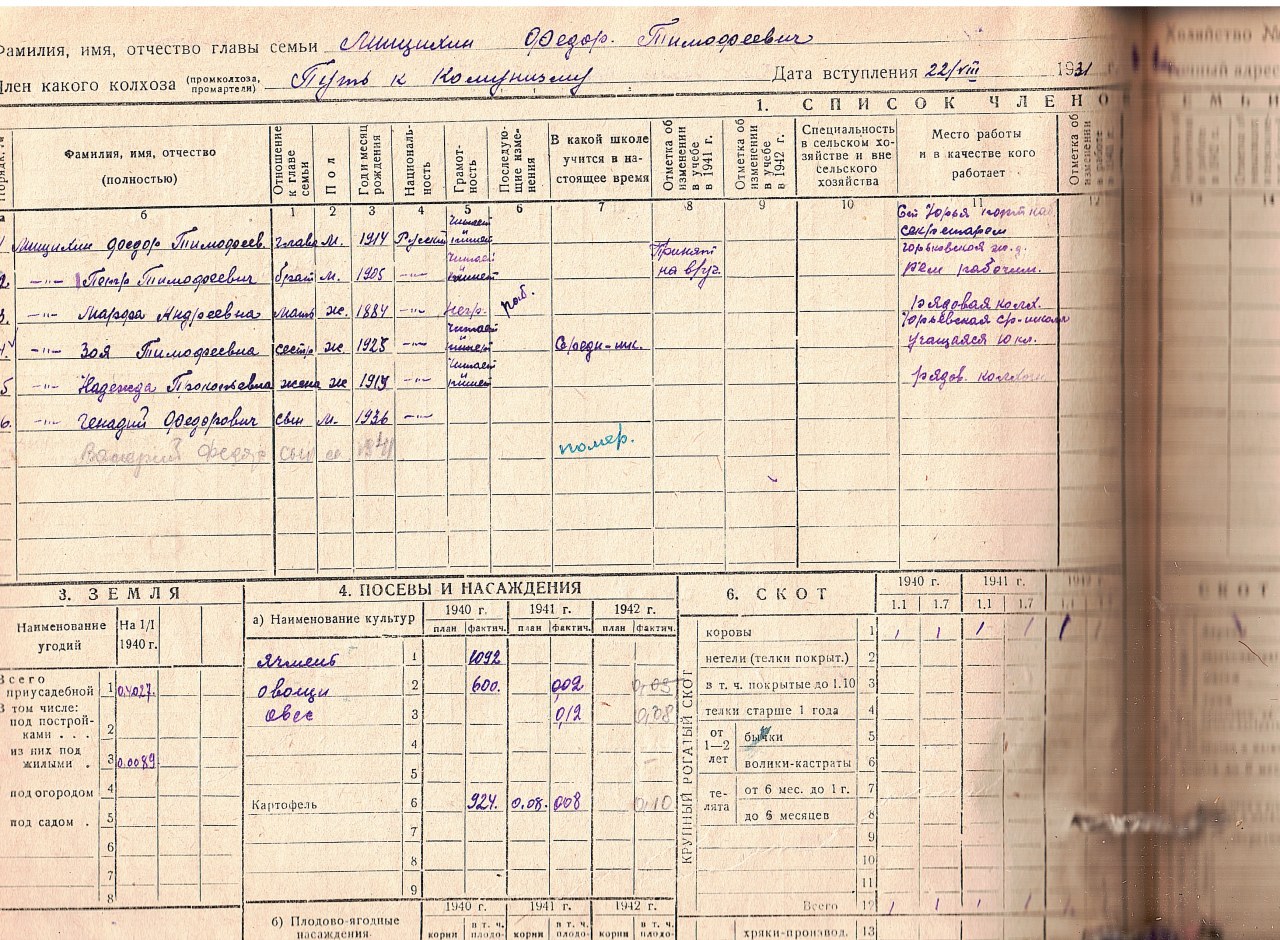 Фамилия, имя, отчество главы семьи Мищихин Федор. Тимофеевич
Член какого колхоза (промколхоза, промартели) Путь к Комунизму Дата вступления 22/VIII 1931 г.
Хозяйство №
1. СПИСОК ЧЛЕНО
Порядк. №
Фамилия, имя, отчество (полностью)
Отношение к главе семьи
Пол
Год и месяц рождения
Националь-ность
Грамот-ность
Последую-щие изме-нения
В какой школе учится в на-стоящее время
Отметка об изменении в учебе в 1941 г.
Отметка об изменении в учебе в 1942 г.
Специальность в сельском хо-зяйстве и вне сельского хозяйства
Место работы и в качестве кого работает
Отметка об изменении
а б 1 2 3 4 5 6 7 8 9 10 11 12 13 14
1 Мищихин Федор Тимофеев. глава м. 1914 Русский читает пишет секретарем
2. —"— Петр Тимофеевич брат м. 1905 —"— читает пишет Принят на в/уч. Горьковская ж.д. рем рабочим.
3. —"— Марфа Андреевна мать ж. 1884 —"— негр. раб. рядовая колх.
4. —"— Зоя Тимофеевна сестр ж. 1923 —"— читает пишет Средн-шк. Юрьевская ср-школа учащаяся 10 кл.
5 —"— Надежда Прокопьевна жена ж 1914 —"— читает пишет рядов. колхозн
6. —"— Генадий Федорович сын м. 1936 —"—
Валерий Федор сын 1941 помер.
3. ЗЕМЛЯ
Наименование угодий На 1/I 1940 г.
Всего приусадебной 1 0.4027.
В том числе:
под построй-ками . . . 2
из них под жилыми . 3 0.0089
под огородом 4
под садом . 5
6
7
8
4. ПОСЕВЫ И НАСАЖДЕНИЯ
а) Наименование культур 1940 г. 1941 г. 1942 г.
план фактич. план фактич. план фактич.
Ячмень 1 1092
Овощи 2 600. 002 0,05
Овес 3 012 0,08
4
5
Картофель 6 924. 0.08. 008 0,10
7
8
9
б) Плодово-ягодные насаждения 1940 г. 1941 г. 1942 г.
корни в т. ч. плодо- корни в т. ч. плодо- корни в т. ч. плодо-
6. СКОТ
1940 г. 1941 г. 1942 г.
1.1 1.7 1.1 1.7
КРУПНЫЙ РОГАТЫЙ СКОТ
коровы 1 1 1 1 1 1
нетели (телки покрыт.) 2
в т. ч. покрытые до 1.10 3
телки старше 1 года 4
от 1—2 лет
бычки 5
волики-кастраты 6
те-лята
от 6 мес. до 1 г. 7
до 6 месяцев 8
9
10
11
Всего 12 1 1 1 1 1
хряки-производ. 13